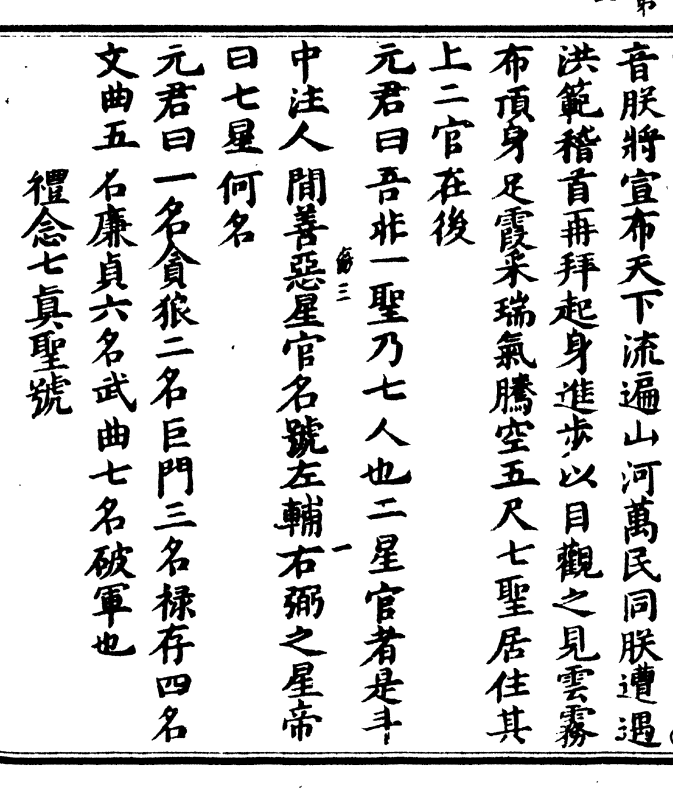 第
音朕將宣布天下流遍山河萬民同朕遭遇
洪範稽首再拜起身進步以目觀之見雲霧
布頂身足霞采瑞氣騰空五尺七聖居住其
上二官在後
元君曰吾非一聖乃七人也二星官者是斗
中注人間善惡星官名號左輔右弼之星帝
曰七星何名
元君曰一名貪狼二名巨門三名祿存四名
文曲五名廉貞六名武曲七名破軍也
禮念七真聖號